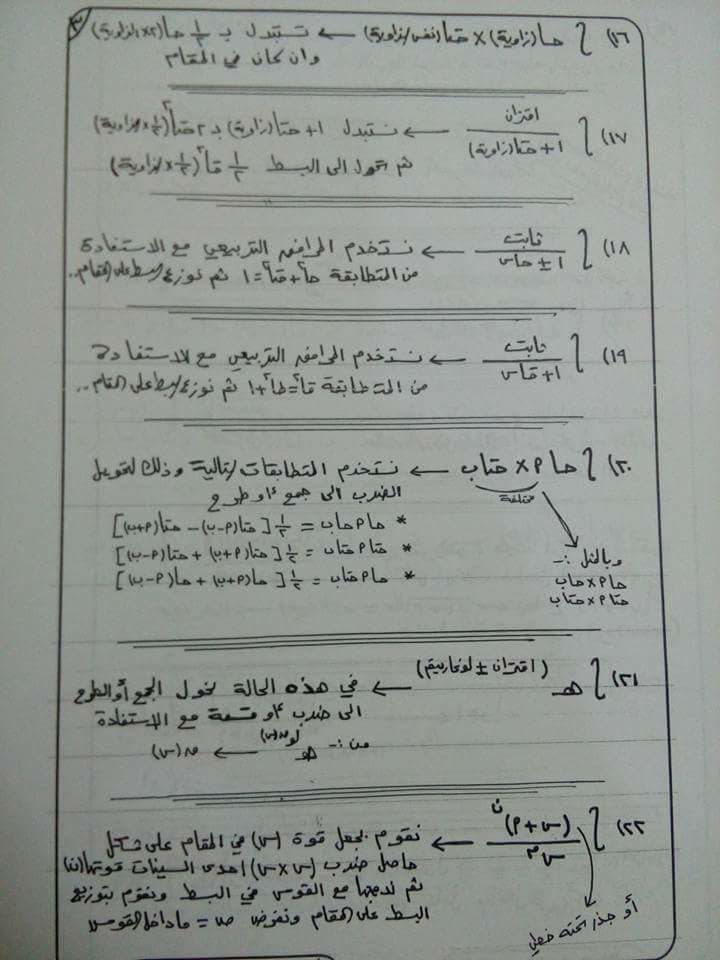 ٣
١٦) ∫ جا(زاوية) × جتا(نفس الزاوية) ← نستبدل بـ ١/٢ جا(٢×الزاوية)
وان كان في المقام
١٧) ∫ اقتران / ١ + جتا(زاوية) ← نستبدل ١ + جتا(زاوية) بـ ٢ جتا²(١/٢ × الزاوية)
ثم نحول الى البسط ١/٢ قا²(١/٢ × الزاوية)
١٨) ∫ ثابت / ١ ± جاس ← نستخدم المرافق التربيعي مع الاستفادة
من المتطابقة جا² + جتا² = ١ ثم نوزع البسط على المقام..
١٩) ∫ ثابت / ١ + قاس ← نستخدم المرافق التربيعي مع الاستفادة
من المتطابقة قا² = ظا² + ١ ثم نوزع البسط على المقام..
٢٠) ∫ جا٩ × جتاب ← نستخدم المتطابقات التالية وذلك لتحويل
مختلفة
الضرب الى جمع أو طرح
* جا٩ جاب = ١/٢ [جتا(٩-ب) - جتا(٩+ب)]
* جتا٩ جتاب = ١/٢ [جتا(٩+ب) + جتا(٩-ب)]
* جا٩ جتاب = ١/٢ [جا(٩+ب) + جا(٩-ب)]
وبالمثل :-
جا٩ × جاب
جتا٩ × جتاب
٢١) ∫ هـ (اقتران ± لوغاريتم) ← في هذه الحالة نحول الجمع أو الطرح
الى ضرب أو قسمة مع الاستفادة
من :- هـ لو ق(س) ← ق(س)
٢٢) ∫ (س + ٩)ن / س م ← نقوم بجعل قوة (س) في المقام على شكل
حاصل ضرب (س × س) احدى السينات قوتها (ن)
ثم ندمجها مع القوس في البسط ونقوم بتوزيع
البسط على المقام ونفرض ص = ما داخل القوس
أو جذر تحته خطي